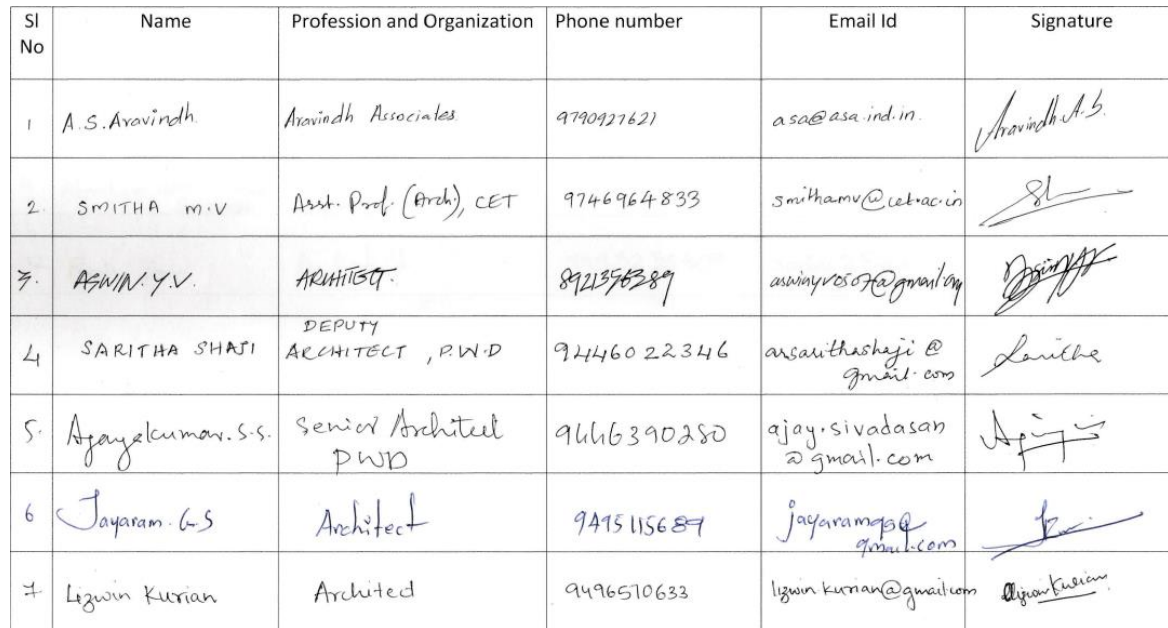 Sl No Name Profession and Organization Phone number Email Id Signature
1 A.S. Aravindh Aravindh Associates 9790927621 asa@asa.ind.in. Aravindh.A.S.
2. SMITHA M.V Asst. Prof. (Arch), CET 9746964833 smithamv@cet.ac.in
3. ASWIN.Y.V. ARCHITECT. 8921356289
DEPUTY
4 SARITHA SHAJI ARCHITECT, P.W.D 9446022346 arsarithashaji@
gmail.com Saritha
5. Ajayakumar.S.S. Senior Architect 9446390280 ajay.sivadasan
PWD @gmail.com
6 Jayaram.G.S Architect 9495115689
gmail.com
7. Lizwin Kurian Architect 9496510633 lizwin.kurian@gmail.com Lizwin Kurian